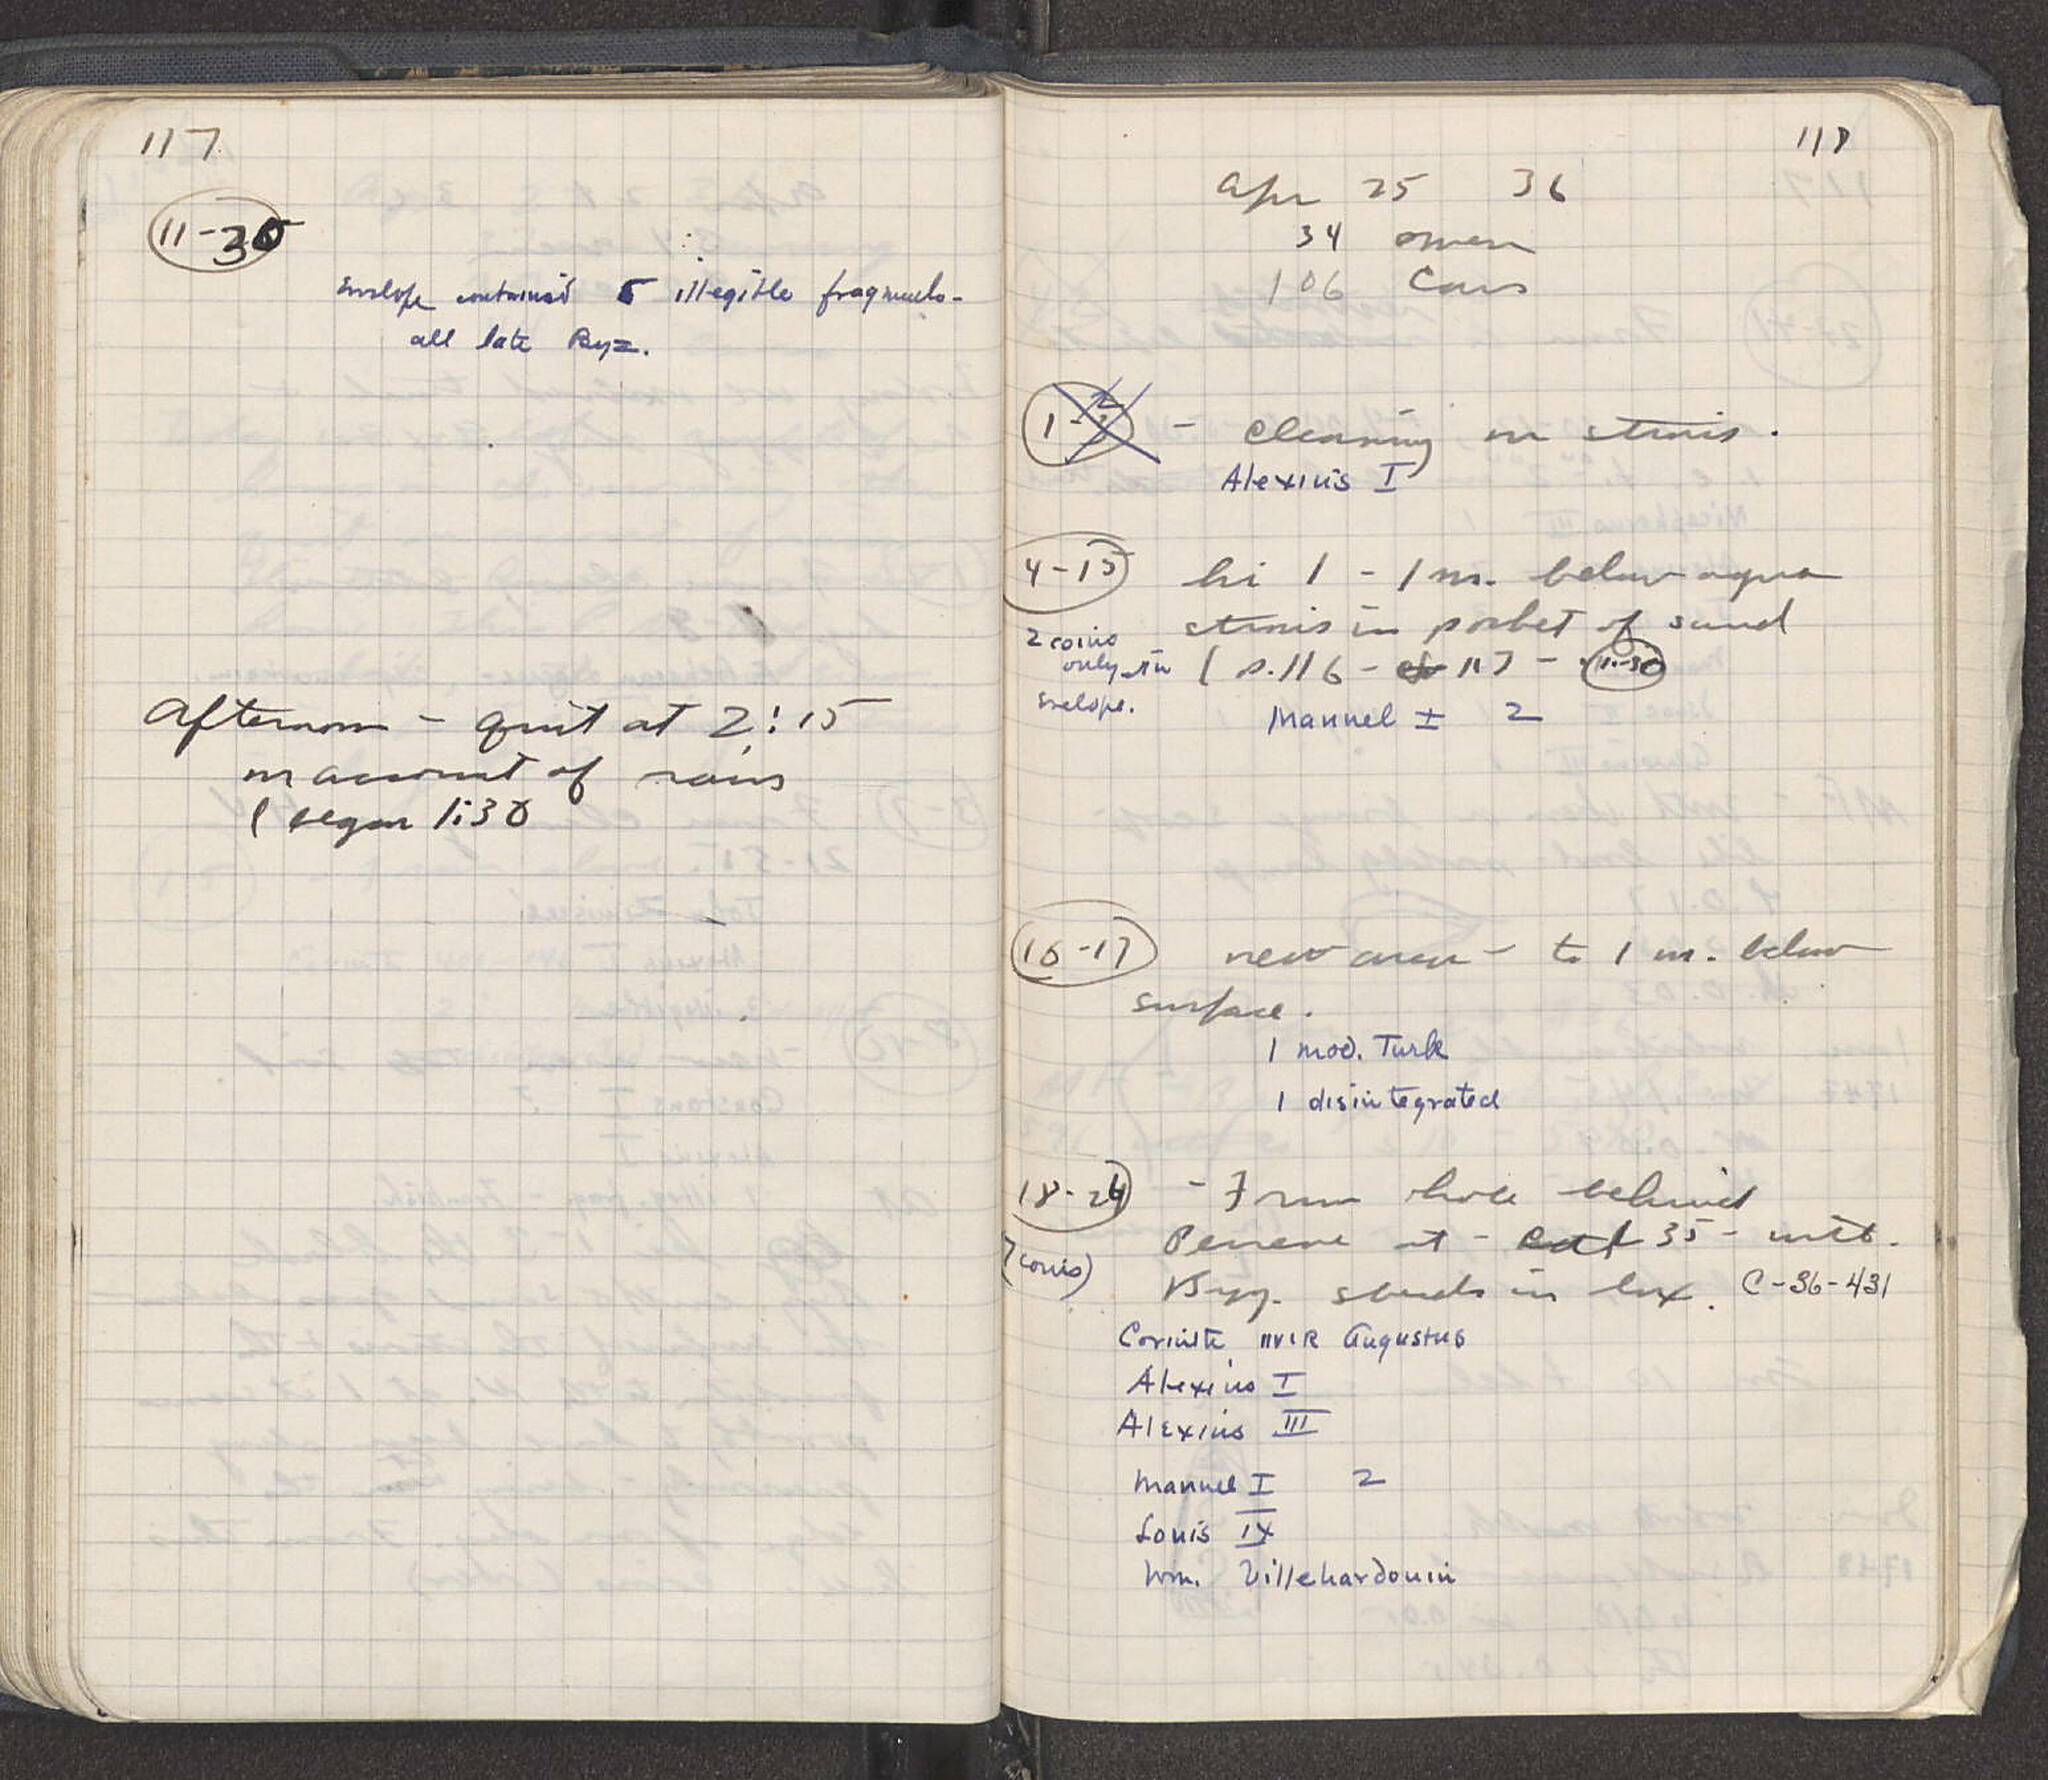 117
11-30
Envelope contained 5 illegible fragments -
all late Byz.
Afternoon - quit at 2:15
on account of rain
(began 1:30
118
Apr 25 36
34 men
106 Cars
1-3 - cleaning on strosis.
Alexius I
4-15 hi 1 - 1 m. below aqua
strosis in pocket of sand
2 coins
only in
envelope.
(p. 116 - 117 - 11-30
Manuel I 2
16-17 new area - to 1 m. below
surface.
1 mod. Turk
1 disintegrated
18-24 - From hole behind
(7 coins)
Peirene at - 35 - with
Byz. sherds in lux. C-36-431
Corinth IIVIR Augustus
Alexius I
Alexius III
Manuel I 2
Louis IX
Wm. Villehardouin